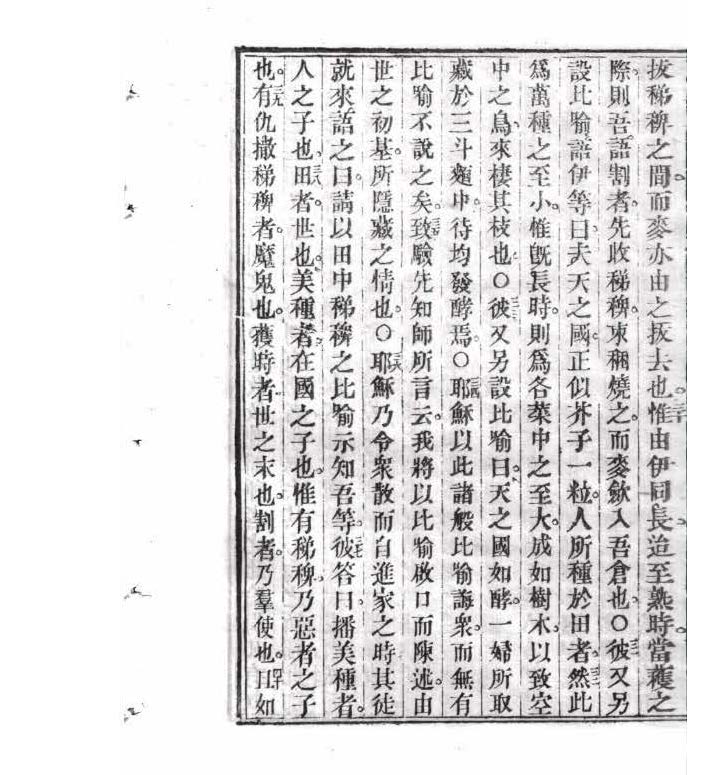 拔稊稗之間而麥亦由之拔去也三十惟由伊同長迨至熟時當穫之
際則吾語割者先收稊稗束稛燒之而麥歛入吾倉也〇三一彼又另
設比喻語伊等曰夫天之國正似芥子一粒人所種於田者三二然此
爲萬種之至小惟旣長時則爲各菜中之至大成如樹木以致空
中之鳥來棲其枝也〇三三彼又另設比喻曰天之國如酵一婦所取
藏於三斗麵中待均發酵焉〇三四耶穌以此諸般比喻誨衆而無有
比喻不說之矣三五致驗先知師所言云我將以比喻啟口而陳述由
世之初基所隱藏之情也〇三六耶穌乃令衆散而自進家之時其徒
就來語之曰請以田中稊稗之比喻示知吾等三七彼答曰播美種者
人之子也三八田者世也美種者在國之子也惟有稊稗乃惡者之子
也三九有仇撒稊稗者魔鬼也穫時者世之末也割者乃羣使也四十且如